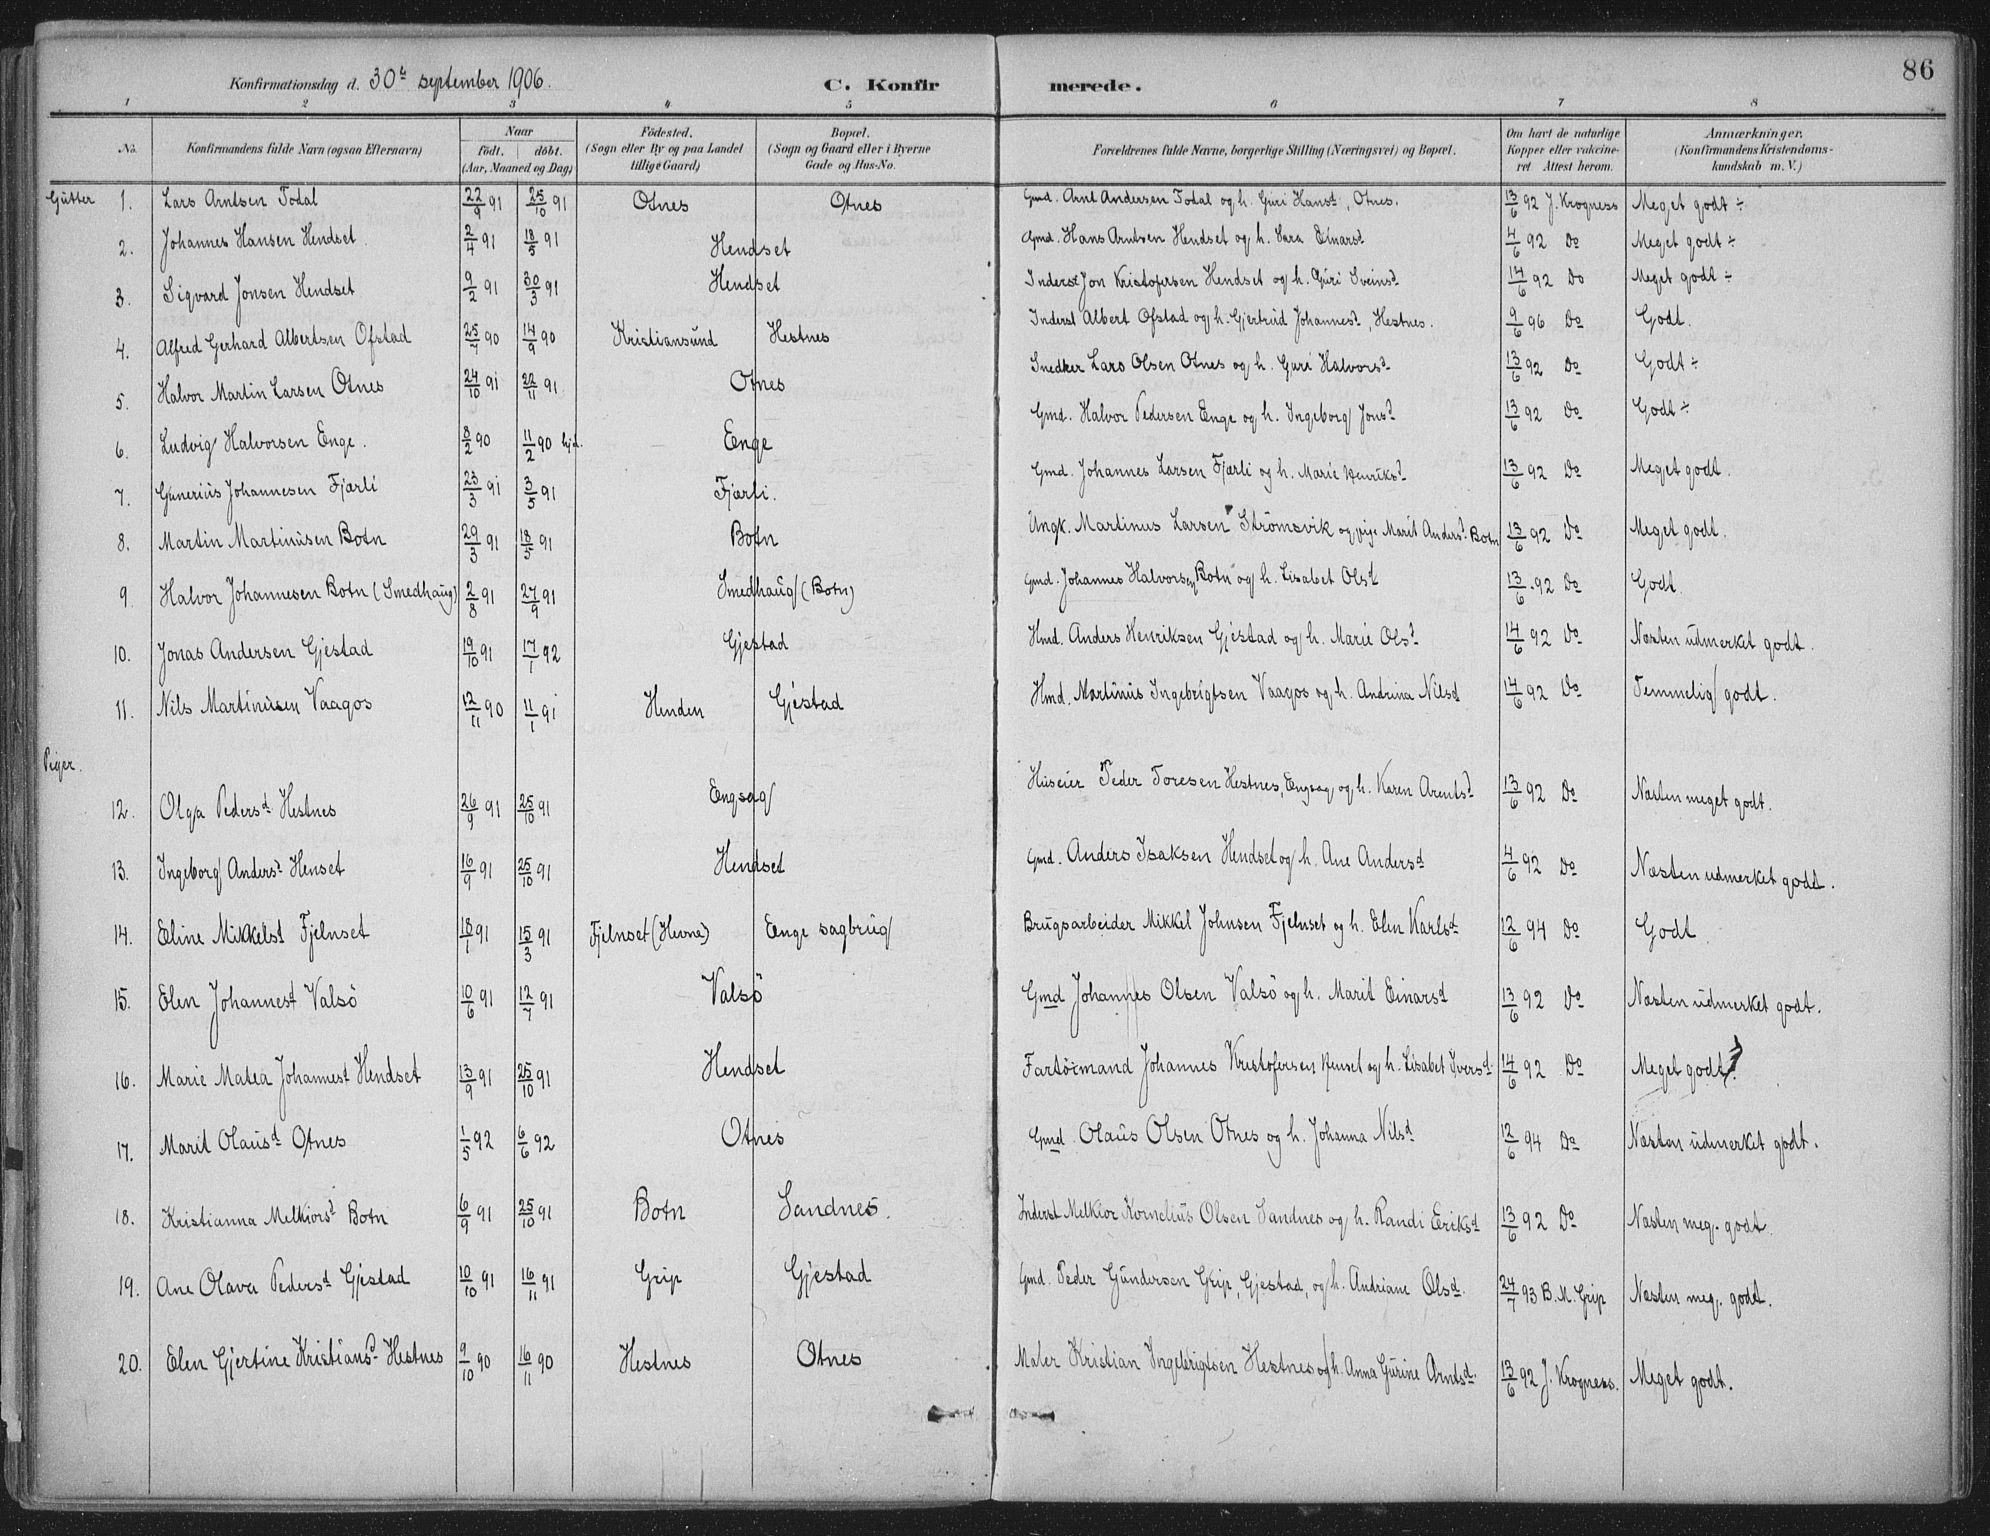 86
Konfirmationsdag d. 30te september 1906. C. Konfirmerede.
1 2 3 4 5 6 7 8
No. Konfirmandens fulde Navn (ogsaa Efternavn) Naar födt. döbt. (Aar, Maaned og Dag) Födested. (Sogn eller By og paa Landet tillige Gaard) Bopæl. (Sogn og Gaard eller i Byerne Gade og Hus-No. Forældrenes fulde Navne, borgerlige Stilling (Næringsvei) og Bopæl. Om havt de naturlige Kopper eller vakcineret Attest herom. Anmærkninger. (Konfirmandens Kristendomskundskab m. V.)
Gutter 1. Lars Arntsen Todal 22/9 91 25/10 91 Otnes Otnes Gmd. Arnt Andersen Todal og h. Guri Hansd, Otnes. 13/6 92 J. Krogness Meget godt ÷
2. Johannes Hansen Hendset 2/4 91 18/5 91 Hendset Gmd. Hans Arntsen Hendset og h. Sara Einarsd 4/6 92 Do Meget godt ÷
3. Sigvard Jonsen Hendset 9/2 91 30/3 91 Hendset Inderst Jon Kristofersen Hendset og h. Guri Sveinsd 14/6 92 Do Meget godt ÷
4. Alfred Gerhard Albertsen Ofstad 25/7 90 14/9 90 Kristiansund Hestnes Inderst Albert Ofstad og h. Gjertrud Johannesd, Hestnes. 9/6 96 Do Godt.
5. Halvor Martin Larsen Otnes 24/10 91 22/11 91 Otnes Snedker Lars Olsen Otnes og h. Guri Halvorsd 13/6 92 Do Godt ÷
6. Ludvig Halvorsen Enge. 8/2 90 11/2 90 hjd. Enge Gmd. Halvor Pedersen Enge og h. Ingeborg Jonsd 13/6 92 Do Godt ÷
7. Gunerius Johannesen Fjærli 23/3 91 3/5 91 Fjærli. Gmd. Johannes Larsen Fjærli og h. Marie Henriksd 13/6 92 Do Meget godt.
8. Martin Martinusen Botn 29/3 91 18/5 91 Botn Ungk. Martinus Larsen Strömsvik og pige Marit Andersd Botn 13/6 92 Do Meget godt.
9. Halvor Johannesen Botn (Smedhaug) 2/8 91 27/9 91 Smedhaug (Botn) Gmd. Johannes Halvorsen Botn og h. Lisabet Olsd 13/6 92 Do Godt.
10. Jonas Andersen Gjestad 19/10 91 17/1 92 Gjestad Hmd. Anders Henriksen Gjestad og h. Marie Olsd 14/6 92 Do Næsten udmerket godt.
11. Nils Martinusen Vaagos 12/11 90 11/1 91 Henden Gjestad Hmd. Martinus Ingebrigtsen Vaagos og h. Andrina Nilsd 14/6 92 Do Temmelig godt.
Piger.
12. Olga Pedersd Hestnes 26/9 91 25/10 91 Engsag Huseier Peder Toresen Hestnes, Engsag og h. Karen Arentsd 13/6 92 Do Næsten meget godt.
13. Ingeborg Andersd Henset 16/9 91 25/10 91 Hendset Gmd. Anders Isaksen Hendset og h. Ane Andersd 4/6 92 Do Næsten udmerket godt.
14. Eline Mikkelsd Fjelnset 18/1 91 15/3 91 Fjelnset (Hevne) Enge sagbrug Brugsarbeider Mikkel Johnsen Fjelnset og h. Elen Karlsd 12/6 94 Do Godt.
15. Elen Johannesd Valsö 10/6 91 12/7 91 Valsö Gmd Johannes Olsen Valsö og h. Marit Einarsd 13/6 92 Do Næsten udmerket godt.
16. Marie Matea Johannesd Hendset 13/9 91 25/10 91 Hendset Fartöimand Johannes Kristofersen Henset og h. Lisabet Iversd 14/6 92 Do Meget godt.
17. Marit Olausd Otnes 1/5 92 6/6 92 Otnes Gmd. Olaus Olsen Otnes og h. Johanna Nilsd 12/6 94 Do Næsten udmerket godt.
18. Kristianna Melkiorsd Botn 6/9 91 25/10 91 Botn Sandnes. Inderst Melkior Kornelius Olsen Sandnes og h. Randi Eriksd 13/6 92 Do Næsten meg. godt.
19. Ane Olava Pedersd Gjestad 10/10 91 16/11 91 Grip Gjestad Gmd. Peder Gundersen Grip, Gjestad, og h. Andriane Olsd. 24/7 93 B. M. Grip Næsten meg. godt.
20. Elen Gjertine Kristiansd Hestnes 9/10 90 16/11 90 Hestnes Otnes Maler Kristian Ingebrigtsen Hestnes og h. Anna Gurine Arntsd. 13/6 92 J. Krogness. Meget godt.